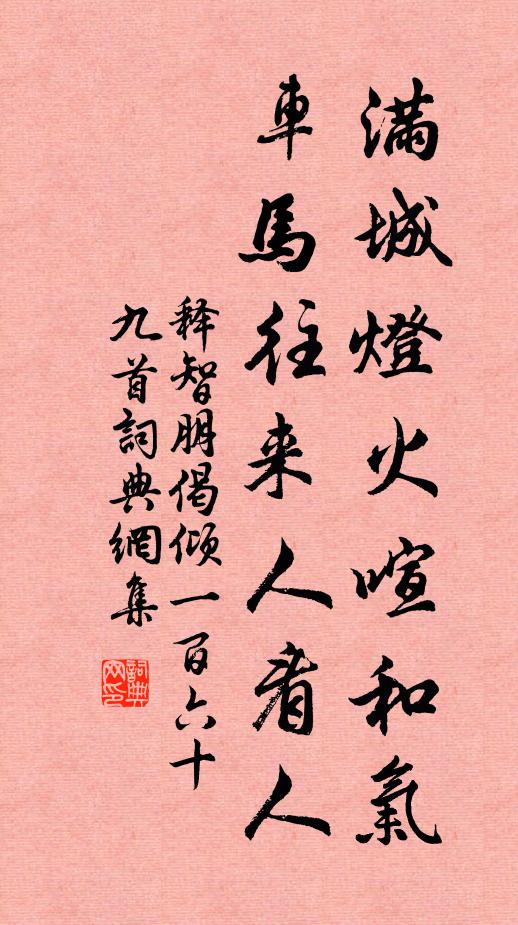 滿城燈火喧和氣
車馬往来人看人
释智朋偈倾一百六十
九首詞典網集
詞典网印